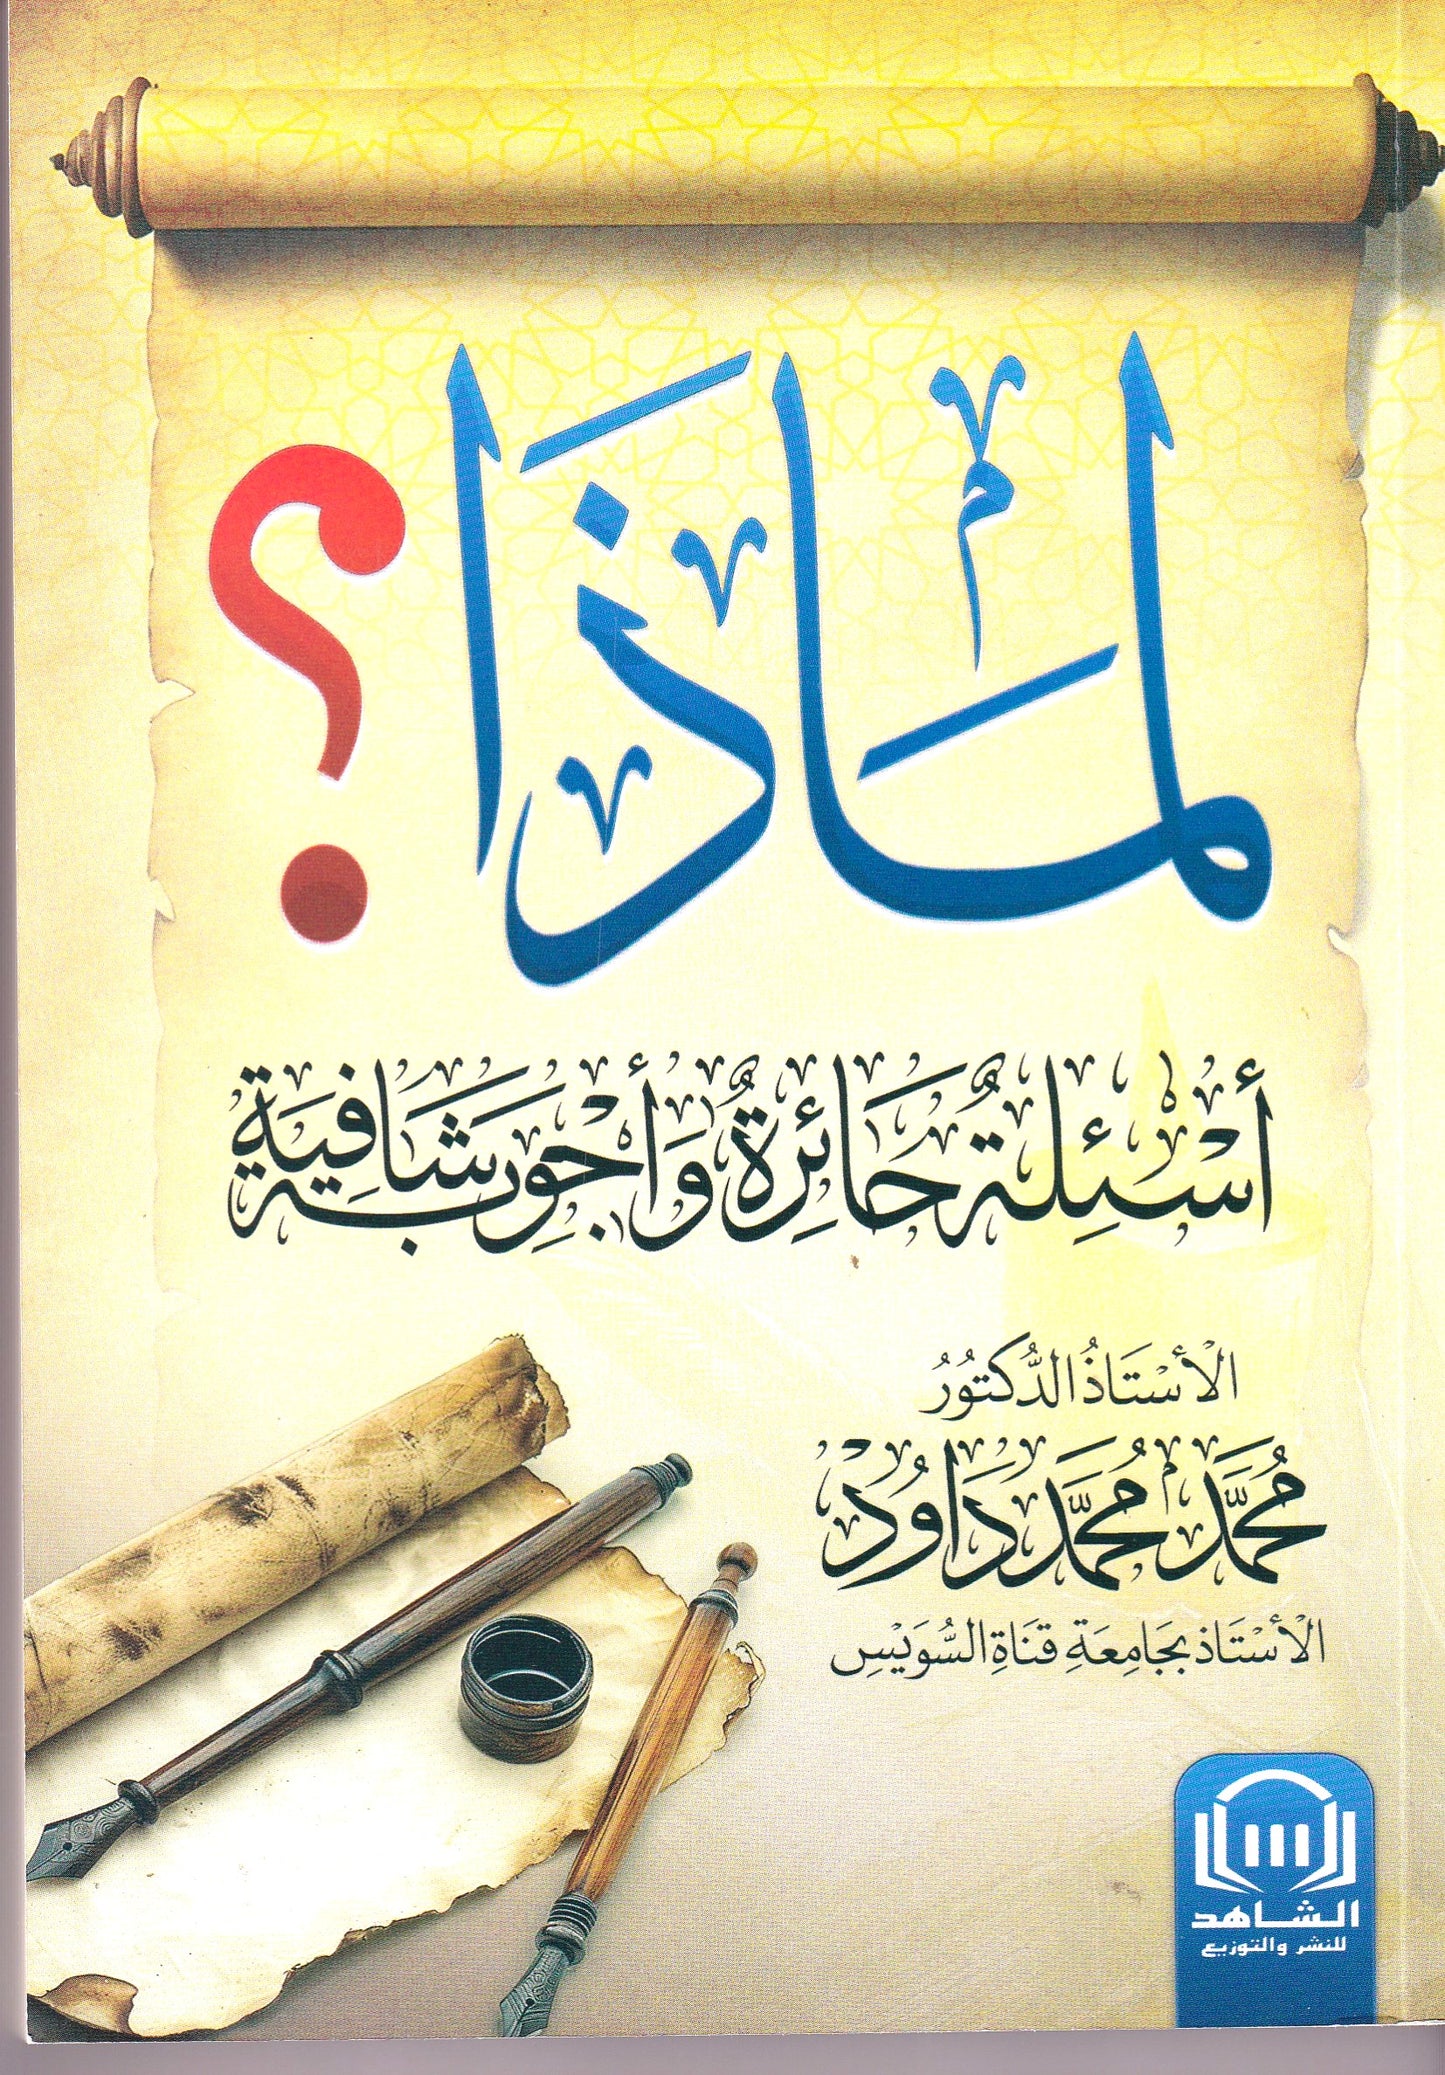 لِمَاذَا؟
أَسْئِلَةٌ حَائِرَةٌ وَأَجْوِبَة شَافِيَة
الْأُسْتَاذُ الدُّكتُورُ
مُحَمَّد مُحَمَّد دَاوُد
الْأُسْتَاذ بِجَامِعَةِ قَنَاةِ السُّوَيْسِ
الشاهد
للنشر والتوزيع